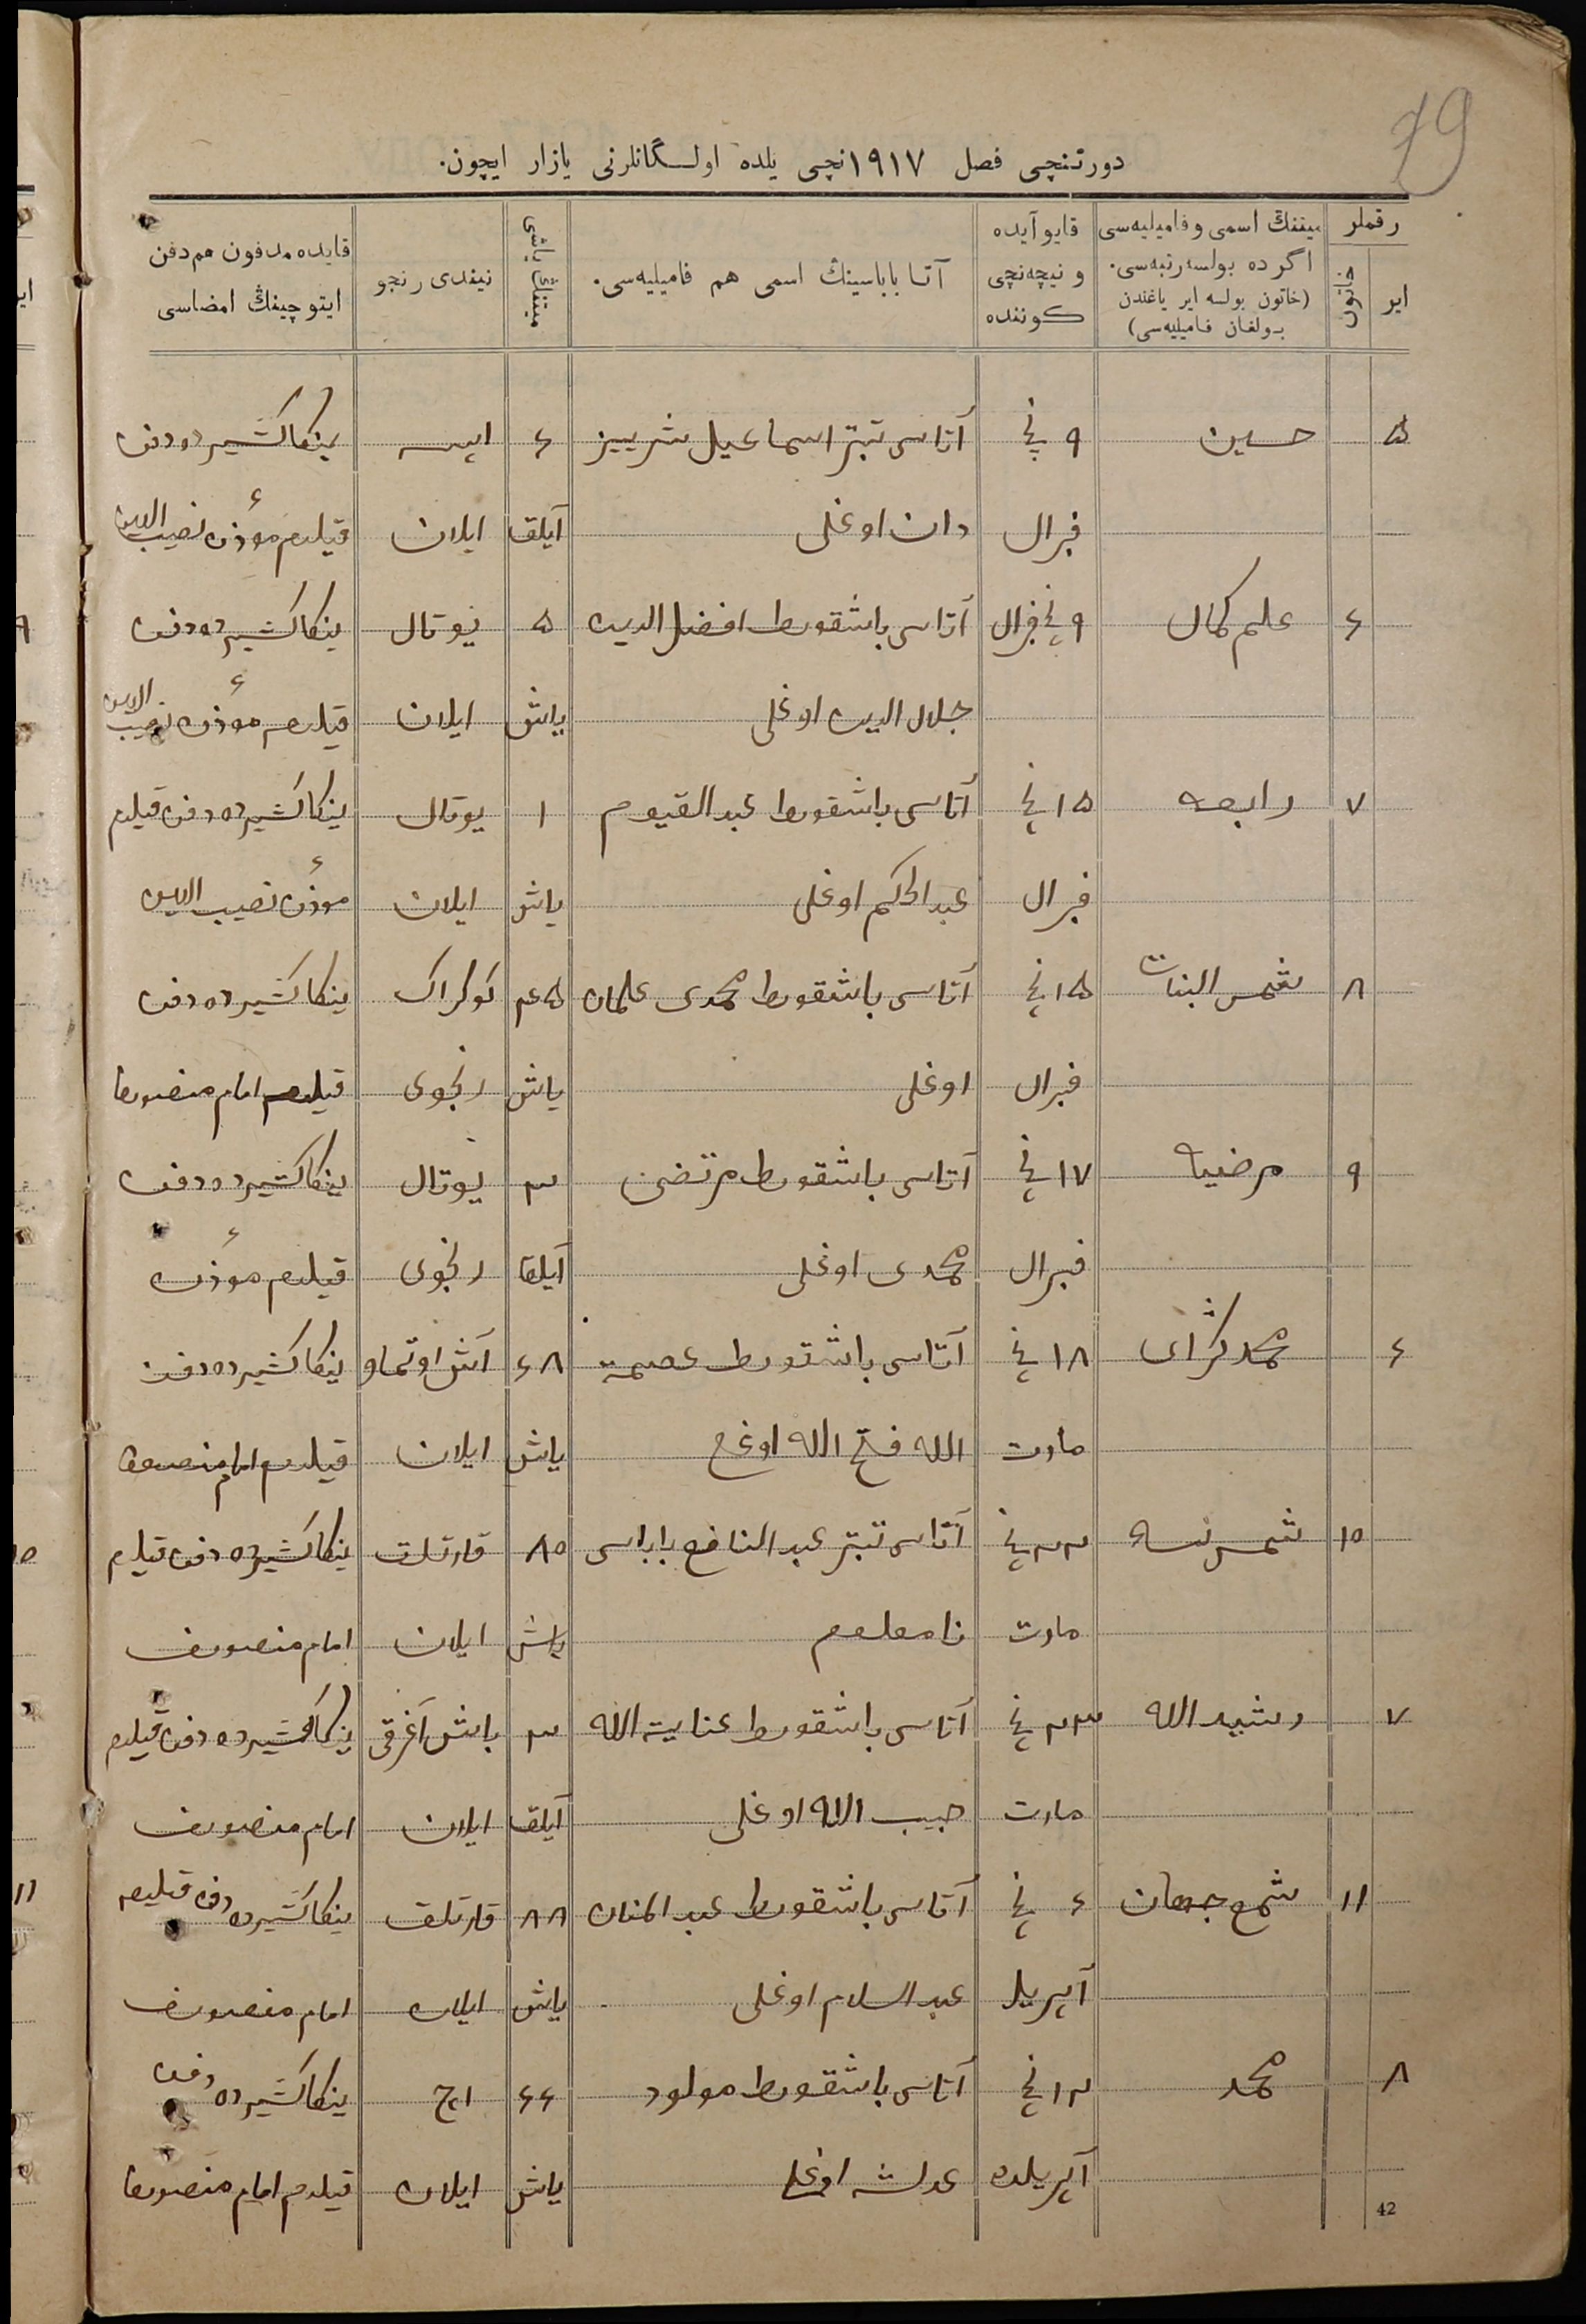 79
دورتنچی فصل ۱۹۱۷نچی یلده اولگانلرنی یازار ایچون.
رقملر
ایر
خاتون
میتنڭ اسمی وفامیلیه‌سی
اگرده بولسه رتبه‌سی.
(خاتون بولسه ایر یاغندن
بولغان فامیلیه‌سی)
قایو آیده
و نیچه‌نچی
کوننده
آتا باباسینڭ اسمی هم فامیلیه‌سی.
میتنڭ یاشی
نیندی رنجو
قایده مدفون هم دفن
ایتوچینڭ امضاسی
۵ حسین ۹ نچی آتاسی تبتر اسماعیل شریییز ۶ ایسه ینکا کشیرده دفن
فبرال دان اوغلی آیلق ایلان قیلدم مؤذن نصیب الدین
۶ علم کمال ۹ نچی فبرال آتاسی باشقورط افضل الدین ۵ یوتال ینکا کشیرده دفن
جلال الدین اوغلی یاش ایلان قیلدم مؤذن نصیب الدین
۷ رابعه ۱۵ نچی آتاسی باشقورط عبد القیوم ۱ یوتال ینکا کشیرده دفن قیلدم
فبرال عبد الحکم اوغلی یاش ایلان مؤذن نصیب الدین
۸ شمس البنات ۱۵ نچی آتاسی باشقورط محمدی علمان ۴۵ کوکراک ینکا کشیرده دفن
فبرال اوغلی یاش رنجوی قیلدم امام منصورف
۹ مرضیه ۱۷ نچی آتاسی باشقورط مرتضی ۳ یوتال ینکا کشیرده دفن
فبرال محمدی اوغلی آیلق رنجوی قیلدم مؤذن
۶ محمد کرای ۱۸ نچی آتاسی باشقورط عصمة ۶۸ آش اوتماو ینکا کشیرده دفن
مارت الله فتح الله اوغلی یاش ایلان قیلدم امام منصورف
۱۰ شمس نسا ۲۲ نچی آتاسی تبتر عبد النافع باباسی ۸۰ قارتلق ینکا کشیرده دفن قیلدم
مارت نامعلوم یاش ایلان امام منصورف
۷ رشید الله ۲۳ نچی آتاسی باشقورط عنایة الله ۳ باش آغرقی ینکا کشیرده دفن قیلدم
مارت حبیب الله اوغلی آیلق ایلان امام منصورف
۱۱ شمع جهان ۶ نچی آتاسی باشقورط عبد المنان ۸۸ قارتلق ینکا کشیرده دفن قیلدم
آپریل عبد السلام اوغلی یاش ایلان امام منصورف
۸ محمد ۱۲ نچی آتاسی باشقورط مولود ۶۶ اچ ینکا کشیرده دفن
آپریلده اوغلی یاش ایلان قیلدم امام منصورف
42